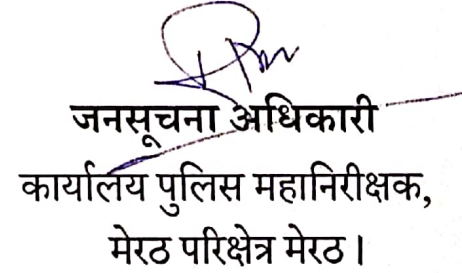 जनसूचना अधिकारी
कार्यालय पुलिस महानिरीक्षक,
मेरठ परिक्षेत्र मेरठ।